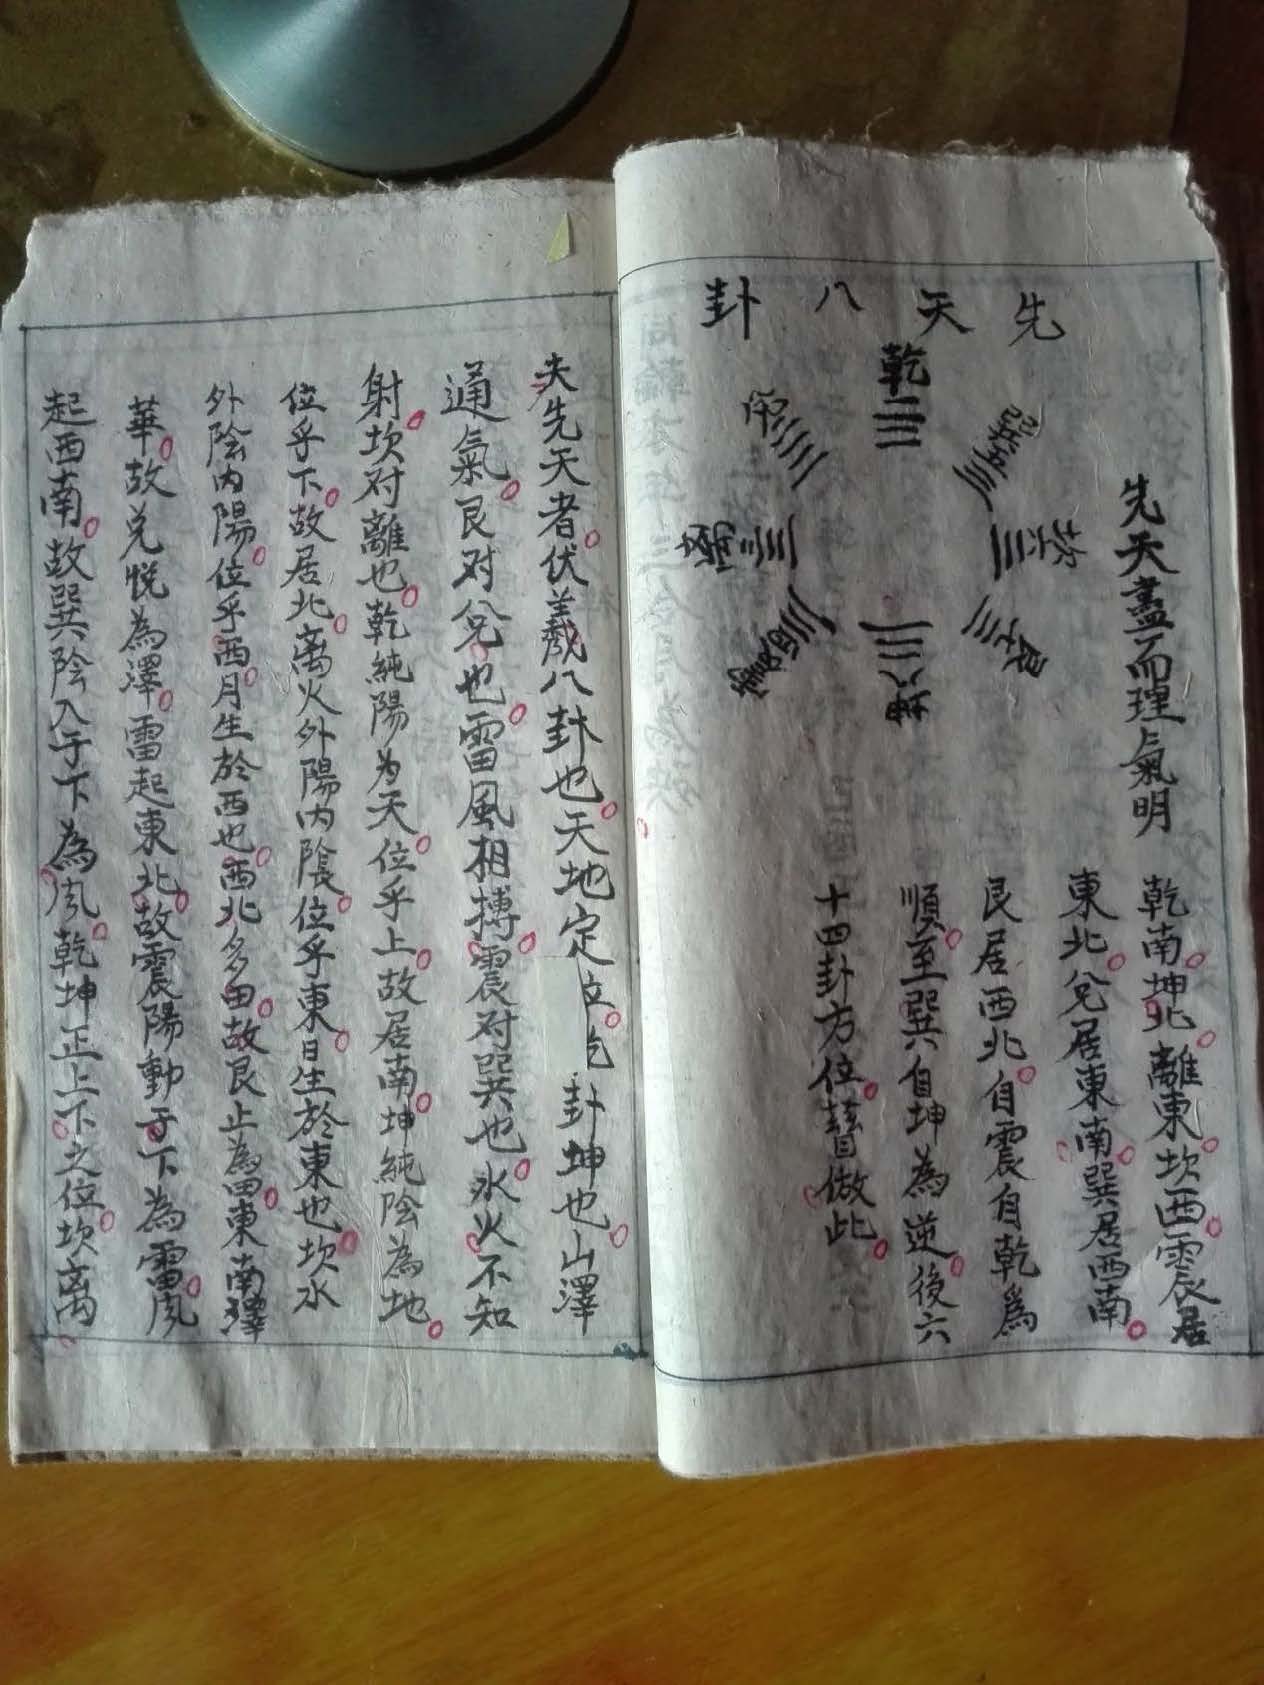 先天八卦
乾
兌
離
震
巽
坎
艮
坤
先天畫而理氣明
乾南。坤北。離東。坎西。震居
東北。兌居東南。巽居西南。
艮居西北。自震自乾為
順。至巽自坤為逆。後六
十四卦方位。
倣此。
夫先天者。伏羲八卦也。天地定
卦坤也。山澤
通氣。艮对兌也。雷風相搏。震对巽也。水火不知
射。坎对離也。乾純陽為天。位乎上。故居南。坤純陰為地。
位乎下。故居北。离火外陽内陰。位乎東。日生於東也。坎水
外陰内陽。位乎西。月生於西也。西北多
故艮止為
東南澤
華。故兌悅為澤。雷起東北。故震陽動于下為雷。風
起西南。故巽陰入于下為風。乾坤正上下之位。坎离